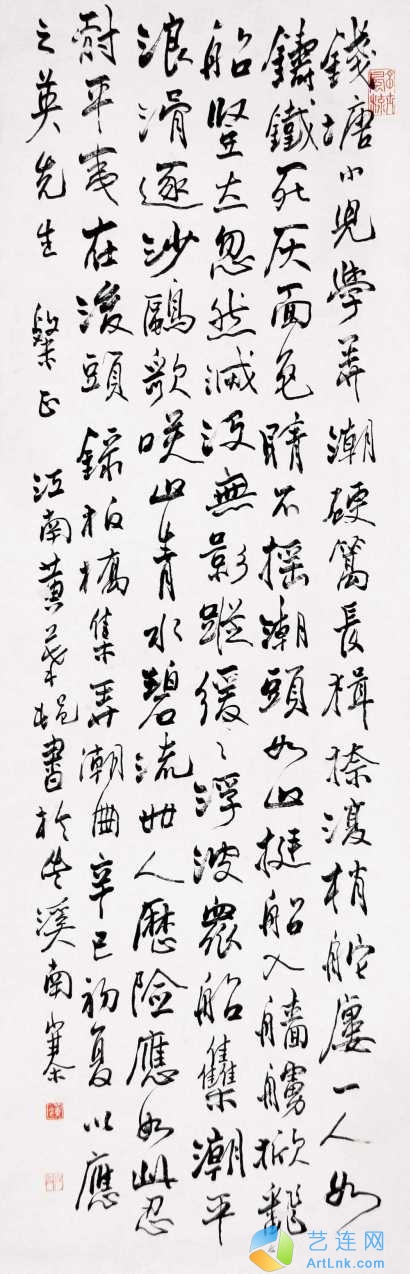 錢塘小兒學弄潮硬篙長楫捺復梢舵廔一人如
鑄鐵死灰面色睛不搖潮頭如山挺船入艢艣掀翻
船豎立忽然滅沒無影蹤緩々浮波眾船雧潮平
浪滑逐沙鷗歌咲山青水碧流世人歷險應如此忍
耐平夷在後頭錄柏梘集弄潮曲辛巳初夏以應
之英先生 正 江南黃葉邨書於溪南寨
艺连网
ArtLnk.com